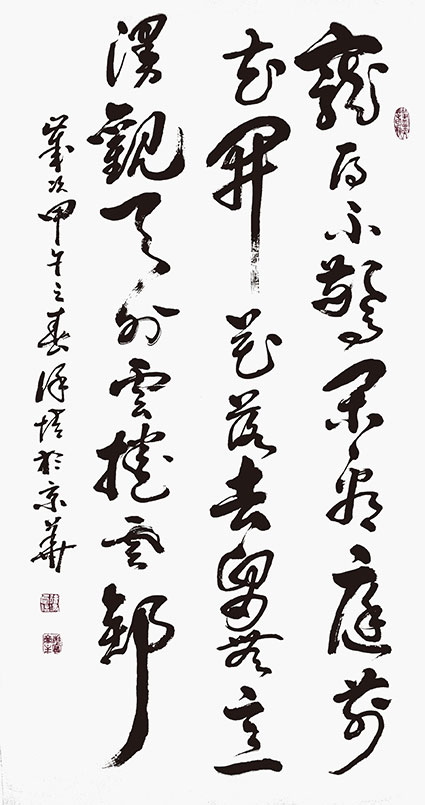 寵辱不驚閑看庭前
花開花落去留無意
漫觀天外雲捲雲舒
歲次甲午之春於京華